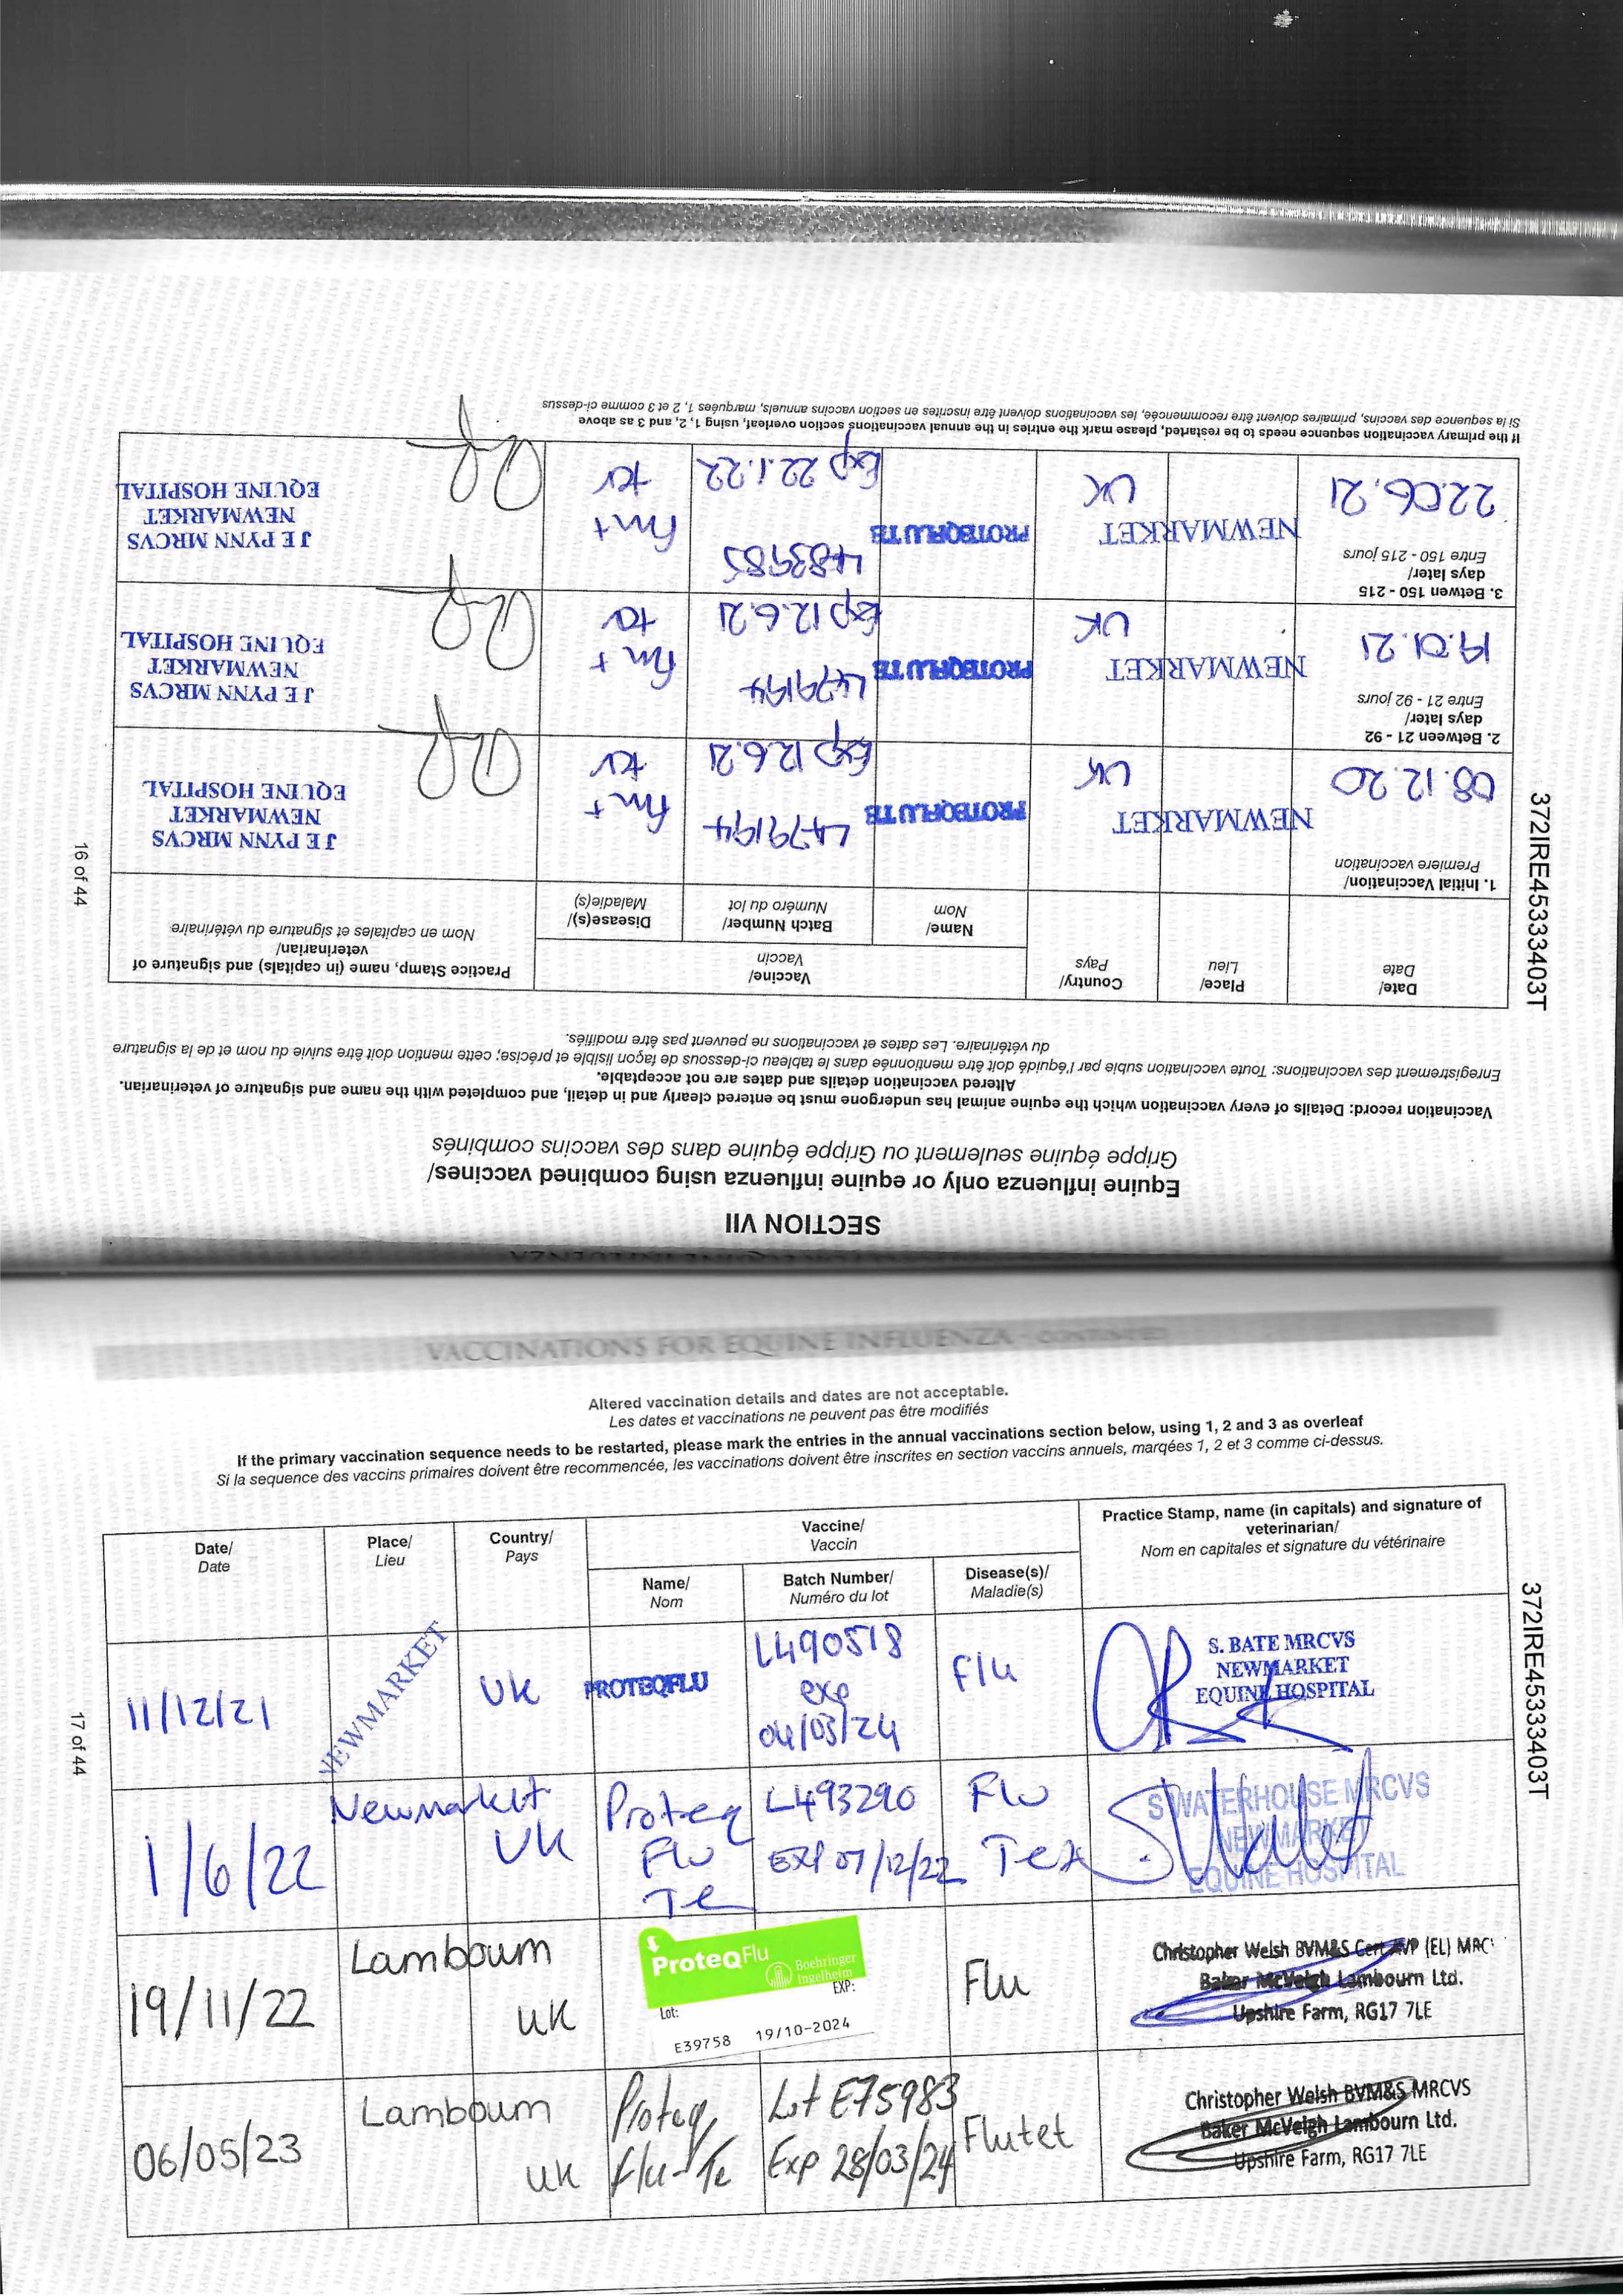 SECTION VII
Equine influenza only or equine influenza using combined vaccines/
Grippe équine seulement ou Grippe équine dans des vaccins combinés
Vaccination record: Details of every vaccination which the equine animal has undergone must be entered clearly and in detail, and completed with the name and signature of veterinarian.
Altered vaccination details and dates are not acceptable.
Enregistrement des vaccinations: Toute vaccination subie par l'équidé doit être mentionnée dans le tableau ci-dessous de façon lisible et précise; cette mention doit être suivie du nom et de la signature
du vétérinaire. Les dates et vaccinations ne peuvent pas être modifiés.
Date/
Date
Place/
Lieu
Country/
Pays
Vaccine/
Vaccin
Name/
Nom
Batch Number/
Numéro du lot
Disease(s)/
Maladie(s)
Practice Stamp, name (in capitals) and signature of
veterinarian/
Nom en capitales et signature du vétérinaire
1. Initial Vaccination/
Premiere vaccination
08.12.20
NEWMARKET
UK
PROTEQFLUTE
L479194
Exp 12.6.21
J E PYNN MRCVS
NEWMARKET
EQUINE HOSPITAL
2. Between 21 - 92
days later/
Entre 21 - 92 jours
19.01.21
NEWMARKET
UK
PROTEQFLUTE
L479194
Exp 12.6.21
J E PYNN MRCVS
NEWMARKET
EQUINE HOSPITAL
3. Betwen 150 - 215
days later/
Entre 150 - 215 jours
22.06.21
NEWMARKET
UK
PROTEQFLUTE
Exp 22.1.22
J E PYNN MRCVS
NEWMARKET
EQUINE HOSPITAL
If the primary vaccination sequence needs to be restarted, please mark the entries in the annual vaccinations section overleaf, using 1, 2, and 3 as above
Si la sequence des vaccins, primaires doivent être recommencée, les vaccinations doivent être inscrites en section vaccins annuels, marquées 1, 2 et 3 comme ci-dessus
372IRE45333403T
16 of 44
VACCINATIONS FOR EQUINE INFLUENZA - CONTINUED
Altered vaccination details and dates are not acceptable.
Les dates et vaccinations ne peuvent pas être modifiés
If the primary vaccination sequence needs to be restarted, please mark the entries in the annual vaccinations section below, using 1, 2 and 3 as overleaf
Si la sequence des vaccins primaires doivent être recommencée, les vaccinations doivent être inscrites en section vaccins annuels, marqées 1, 2 et 3 comme ci-dessus.
Date/
Date
Place/
Lieu
Country/
Pays
Vaccine/
Vaccin
Name/
Nom
Batch Number/
Numéro du lot
Disease(s)/
Maladie(s)
Practice Stamp, name (in capitals) and signature of
veterinarian/
Nom en capitales et signature du vétérinaire
11/12/21
NEWMARKET
UK
PROTEQFLU
L490518
exp
04/03/24
Flu
S. BATE MRCVS
NEWMARKET
EQUINE HOSPITAL
1/6/22
Newmarket
UK
Proteq
Flu
Te
L493290
EXP 07/12/22
Flu
Tet
S WATERHOUSE MRCVS
NEWMARKET
EQUINE HOSPITAL
19/11/22
Lambourn
UK
ProteqFlu
Boehringer
Ingelheim
Lot:
EXP:
E39758 19/10-2024
Flu
Christopher Welsh BVM&S Cert AVP (EL) MRC
Baker McVeigh Lambourn Ltd.
Upshire Farm, RG17 7LE
06/05/23
Lambourn
UK
Proteq
Flu-Te
Lot E75983
Exp 28/03/24
Flutet
Christopher Welsh BVM&S MRCVS
Baker McVeigh Lambourn Ltd.
Upshire Farm, RG17 7LE
372IRE45333403T
17 of 44